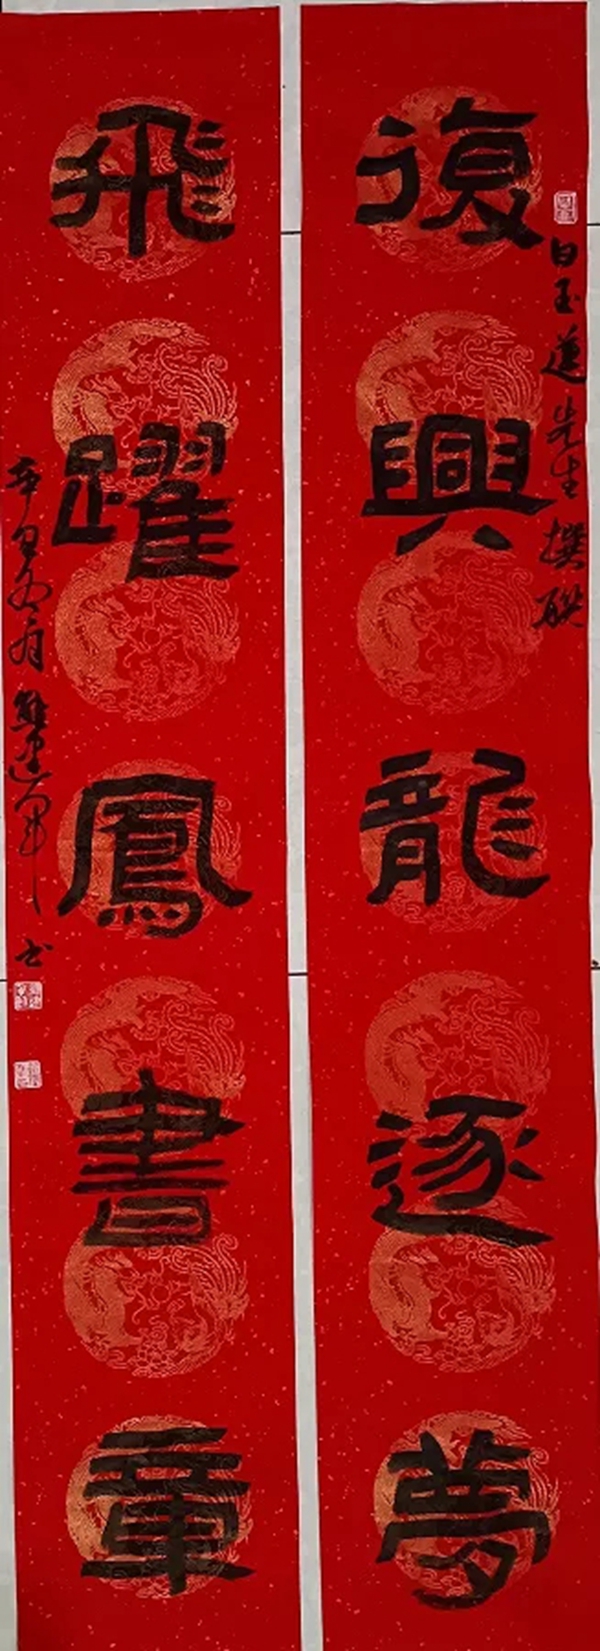 復興龍逐夢
白玉蓮先生撰联
飛躍鳳書章
辛丑冬月
书